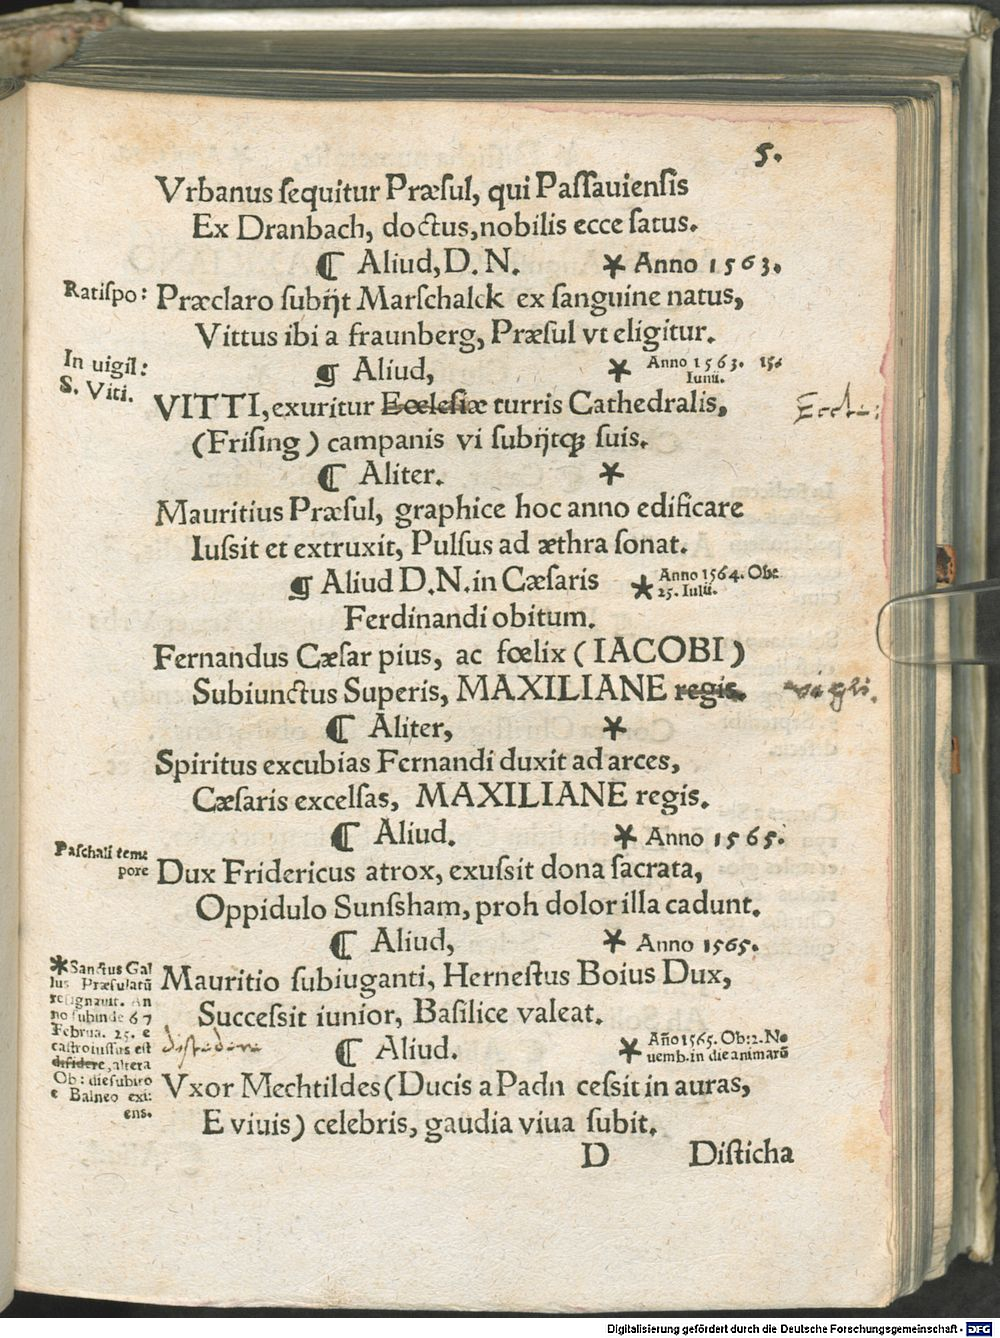 5.
Vrbanus ſequitur Præſul, qui Paſſauienſis
Ex Dranbach, doctus, nobilis ecce ſatus.
¶ Aliud, D. N. * Anno 1563.
Ratiſpo:
Præclaro ſubijt Marſchalck ex ſanguine natus,
Vittus ibi a fraunberg, Præſul vt eligitur.
In uigil:
S. Viti.
¶ Aliud, * Anno 1563. 15.
Iunii.
VITTI, exuritur Eccleſiæ turris Cathedralis,
Eccle:
(Friſing) campanis vi ſubijtqꝫ ſuis.
¶ Aliter. *
Mauritius Præſul, graphice hoc anno edificare
Iuſsit et extruxit, Pulſus ad æthra ſonat.
¶ Aliud D. N. in Cæſaris * Anno 1564. Ob:
25. Iulii.
Ferdinandi obitum.
Fernandus Cæſar pius, ac fœlix (IACOBI)
Subiunctus Superis, MAXILIANE regis.
vigli.
¶ Aliter, *
Spiritus excubias Fernandi duxit ad arces,
Cæſaris excelſas, MAXILIANE regis.
¶ Aliud. * Anno 1565.
Paſchali tem⸗
pore
Dux Fridericus atrox, exuſsit dona ſacrata,
Oppidulo Sunſsham, proh dolor illa cadunt.
¶ Aliud, * Anno 1565.
Mauritio ſubiuganti, Herneſtus Boius Dux,
Succeſsit iunior, Baſilice valeat.
*Sanctus Gal
lus Præſulatū
reſignauit. An
no ſubinde 67
Februa. 25. e
caſtro iuſſus eſt
diſidere, altera
Ob: die ſubito
e Balneo exi:
ens.
diſcedere
¶ Aliud. * Año 1565. Ob: 2. No
uemb. in die animarū
Vxor Mechtildes (Ducis a Padn ceſsit in auras,
E viuis) celebris, gaudia viua ſubit.
D Diſticha
Digitalisierung gefördert durch die Deutsche Forschungsgemeinschaft - DFG